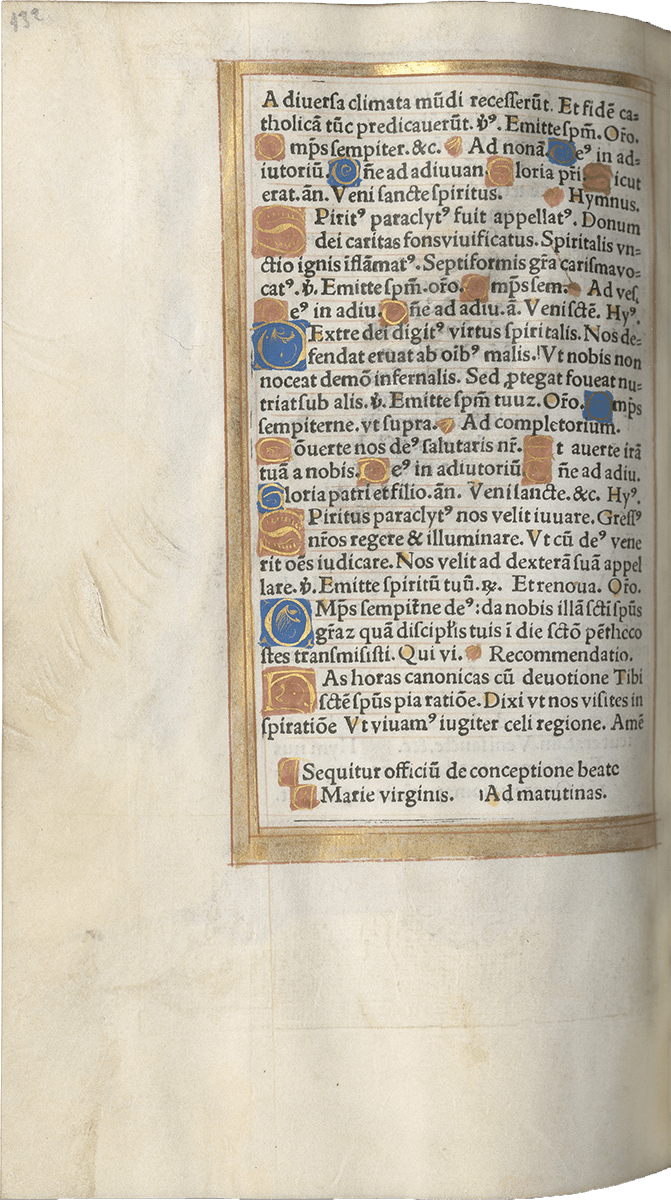 132
A diuersa climata mūdi recesserūt. Et fidē ca=
tholicā tūc predicauerūt. ℣ꝰ. Emitte spm̄. Or̄o.
O mp̄s sempiter. &c. Ad nonā. D eꝰ in ad=
iutoriū. D n̄e ad adiuuan. G loria pr̄i S icut
erat. ān. Veni sancte spiritus. Hymnus.
S Piritꝰ paraclytꝰ fuit appellatꝰ. Donum
dei caritas fons viuificatus. Spiritalis vn=
ctio ignis īflāmatꝰ. Septiformis gr̄a carisma vo=
catꝰ. ℣. Emitte spm̄. or̄o. O mp̄s sem. Ad ves.
D eꝰ in adiu. D n̄e ad adiu. ā. Veni sctē. Hyꝰ.
D Extre dei digitꝰ virtus spiritalis. Nos de=
fendat eruat ab oīb⁹ malis. Vt nobis non
noceat demō infernalis. Sed ꝓtegat foueat nu=
triat sub alis. ℣. Emitte spm̄ tuuz. Or̄o. O mp̄s
sempiterne. vt supra. Ad completorium.
C ōuerte nos deꝰ salutaris nr̄. E t auerte irā
tuā a nobis. D eꝰ in adiutoriū. D n̄e ad adiu.
G loria patri et filio. ān. Veni sancte. &c. Hyꝰ.
S Piritus paraclytꝰ nos velit iuuare. Gressꝰ
nr̄os regere & illuminare. Vt cū deꝰ vene
rit oēs iudicare. Nos velit ad dexterā suā appel
lare. ℣. Emitte spiritū tuū. ℟. Et renoua. Or̄o.
O Mp̄s sempiťne deꝰ: da nobis illā sc̄ti sp̄us
gr̄az quā discipl̄is tuis ī die sctō pēthcco
stes transmisisti. Qui vi. Recommendatio.
H As horas canonicas cū deuotione Tibi
sctē sp̄us pia ratiōe. Dixi vt nos visites in
spiratiōe Vt viuamꝰ iugiter celi regione. Amē
Sequitur officiū de conceptione beate
Marie virginis. Ad matutinas.